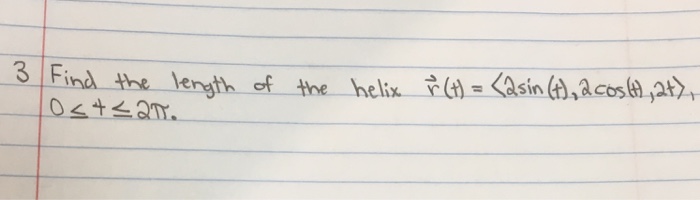 3 Find the length of the helix r⃗(t) = ⟨2sin(t), 2cos(t), 2t⟩,
0 ≤ t ≤ 2π.